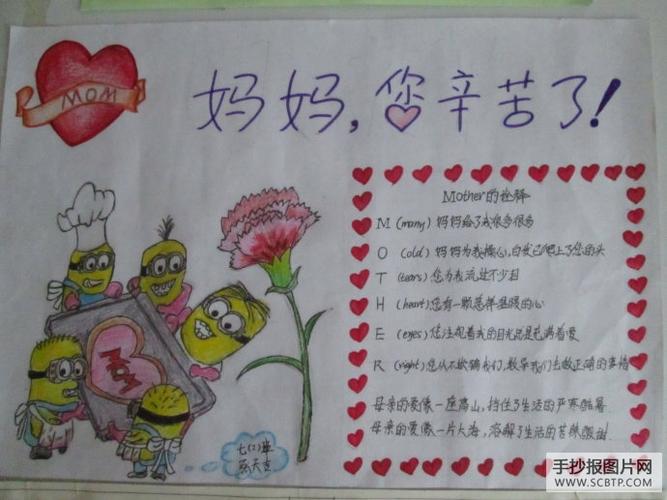 MOM
妈妈,您辛苦了!
Mother的诠释
M (many) 妈妈给了我很多很多
O (old) 妈妈为我操心,白发已爬上了您的头
T (tears) 您为我流过不少泪
H (heart) 您有一颗慈祥温暖的心
E (eyes) 您注视着我的目光总是充满着爱
R (right) 您从不欺骗我们,教导我们去做正确的事情
母亲的爱像一座高山,挡住了生活的严寒酷暑
母亲的爱像一片大海,溶解了生活的苦辣酸甜
MOM
七(2)班
天吉
手抄报图片网
WWW.SCBTP.COM